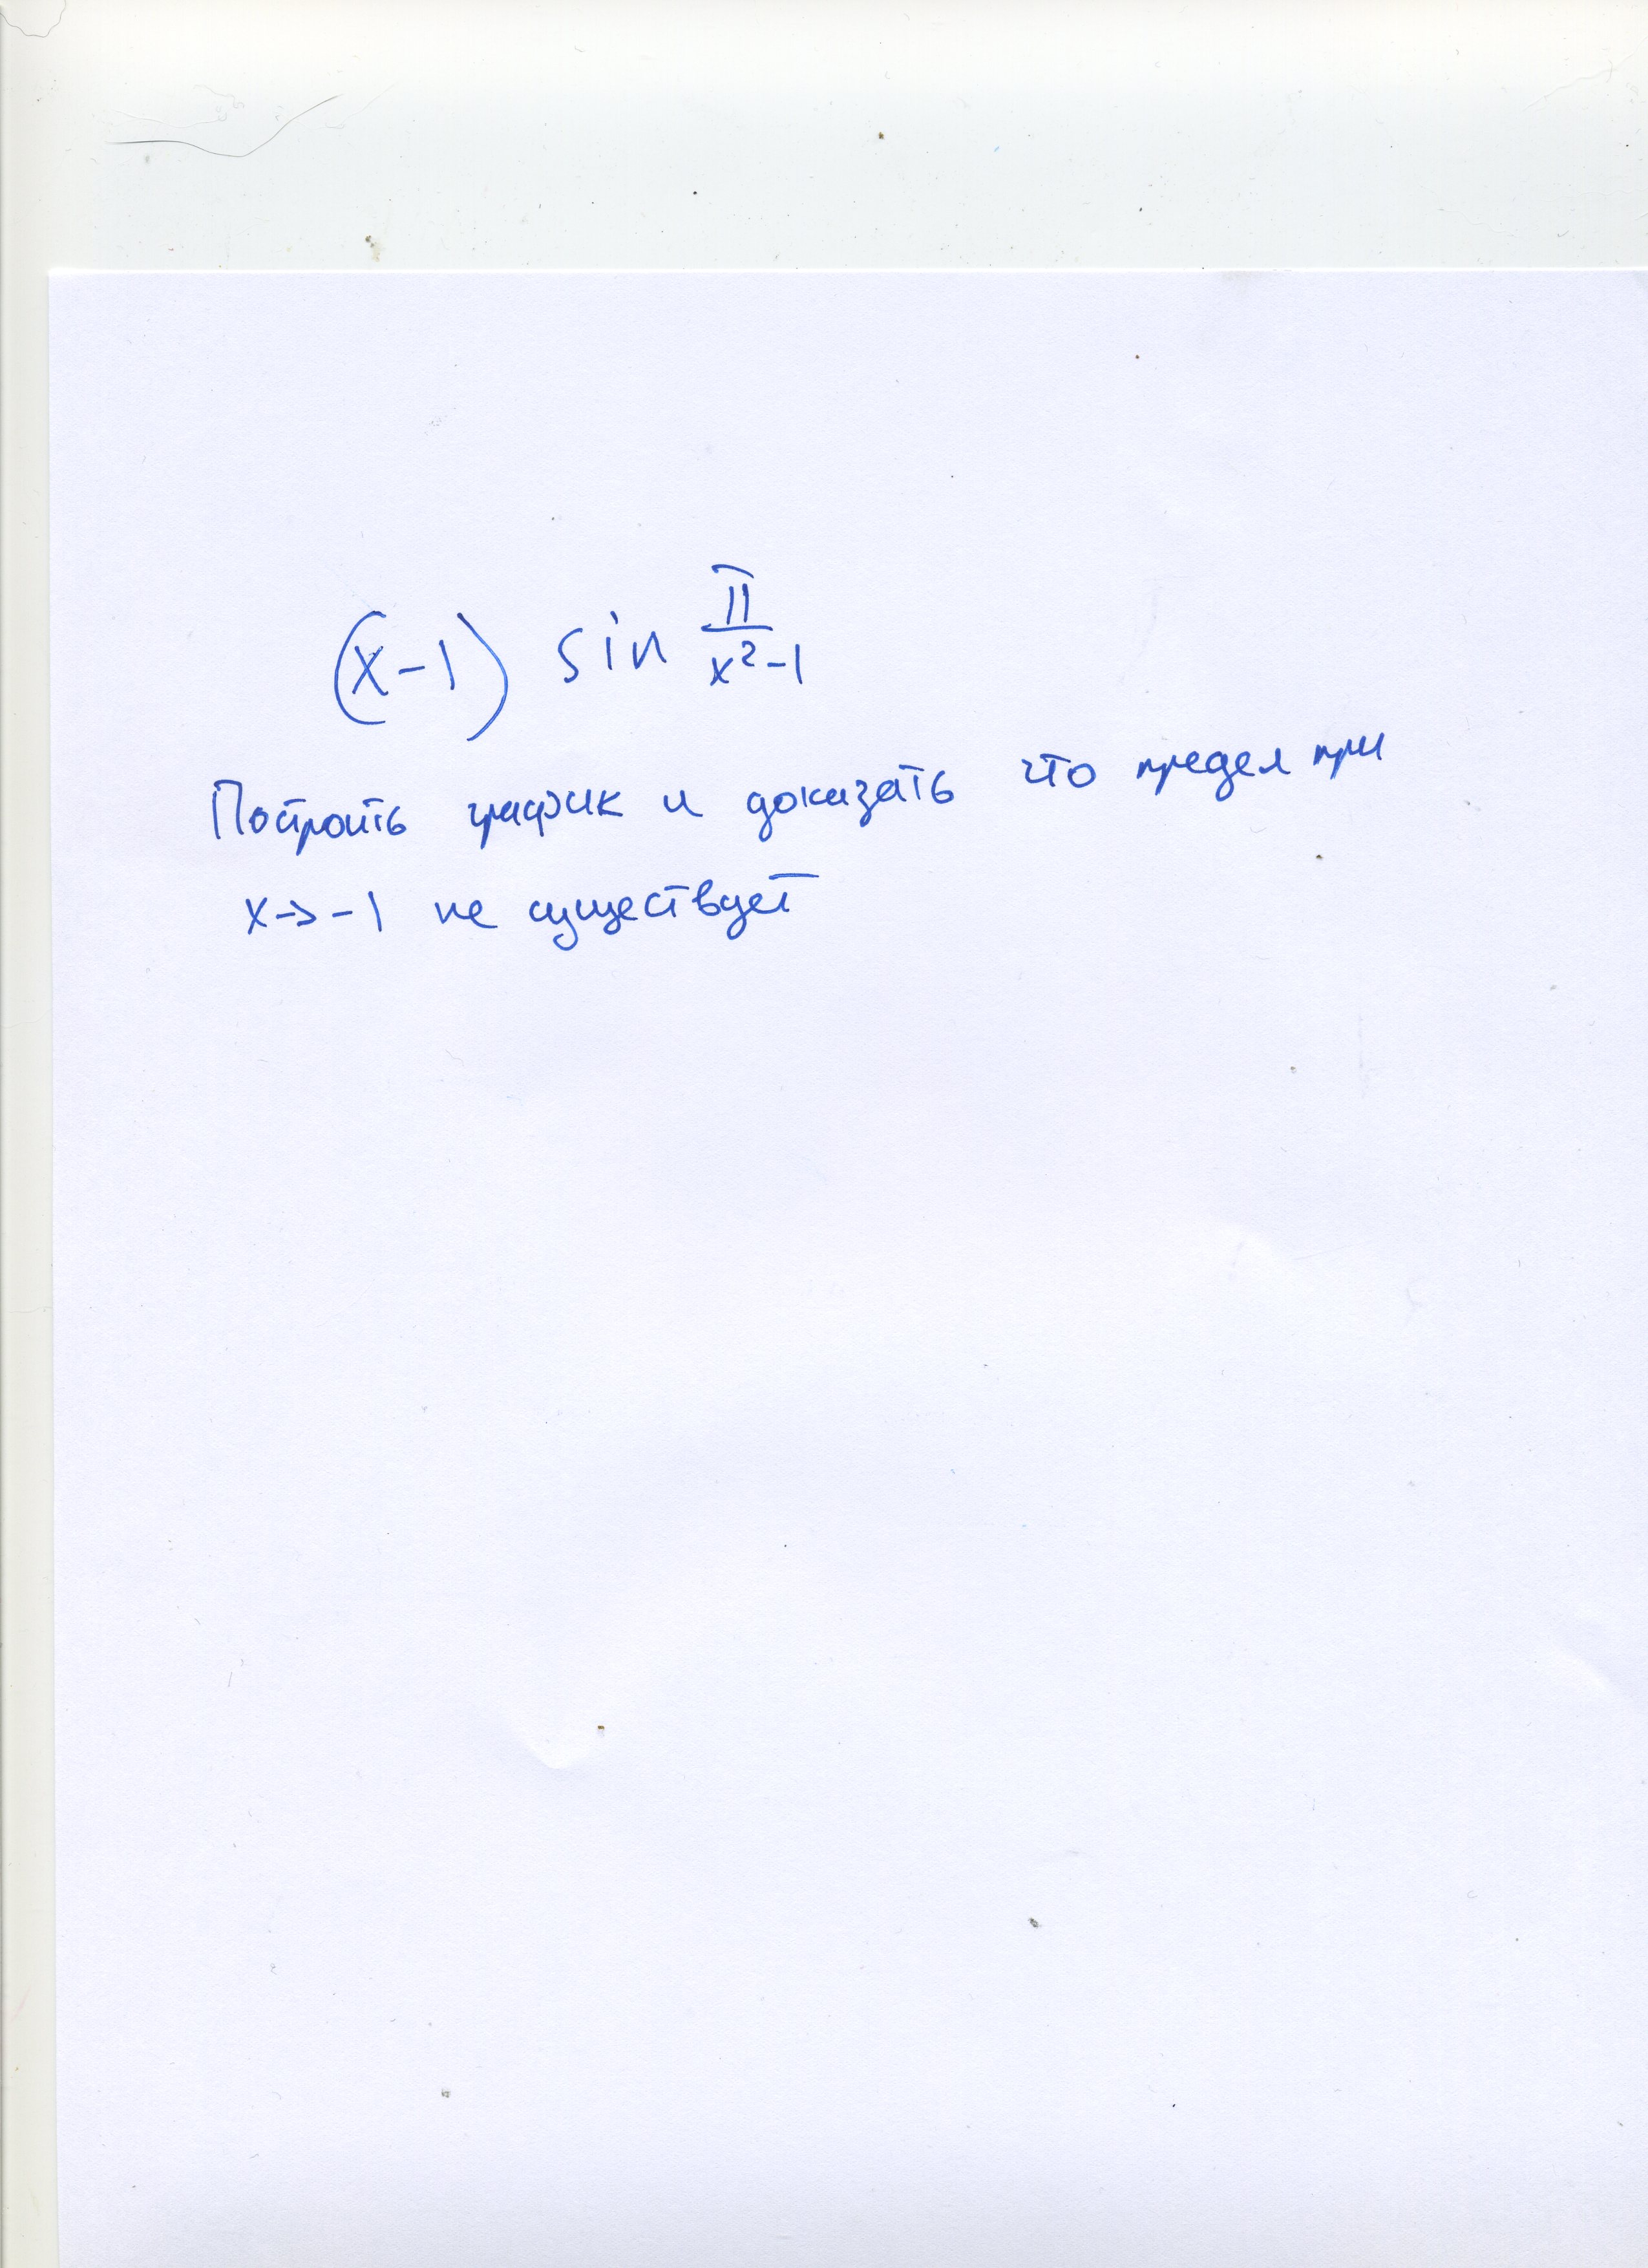 (x-1) sin π/(x²-1)
Построить график и доказать что предел при
x→-1 не существует